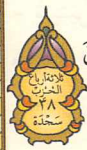 ثلاثة أرباع
الحزب
٤٨
سجدة